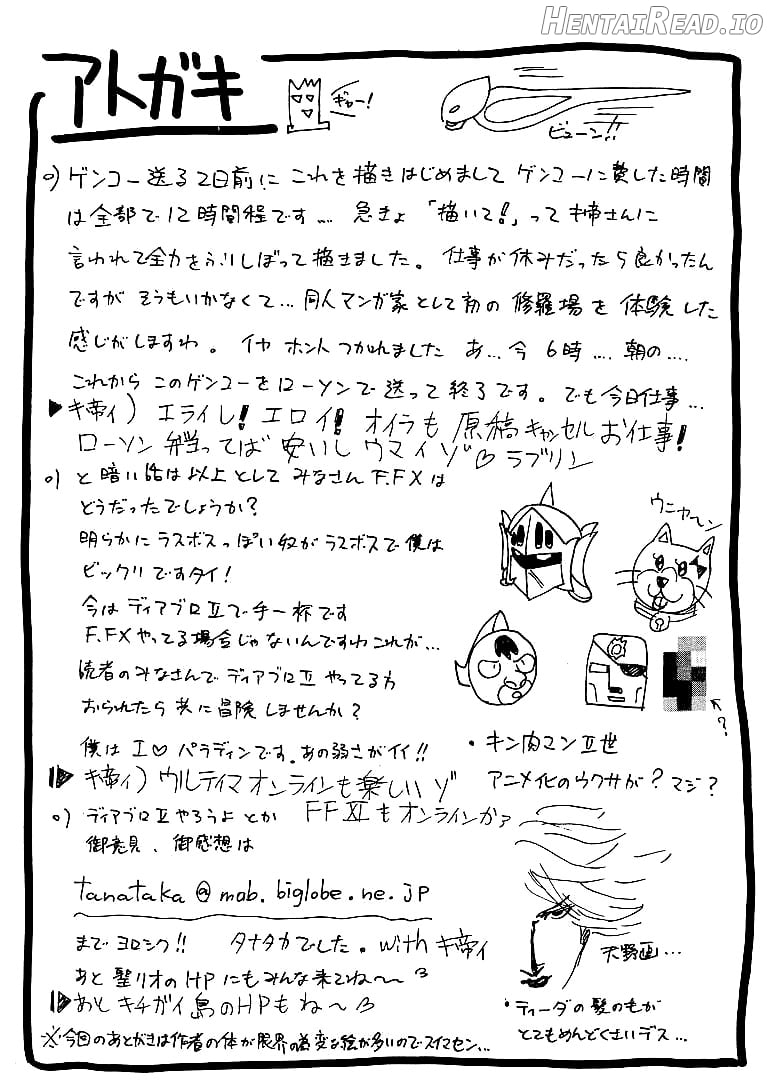 HENTAIREAD.IO
アトガキ
ギャー!
ビューン!!
o) ゲンコー送る2日前に これを描きはじめまして ゲンコーに費した時間
は全部で12時間程です… 急きょ「描いて!」って キ帝さんに
言われて全力をふりしぼって描きました。仕事が休みだったら良かったん
ですが そうもいかなくて… 同人マンガ家として初の 修羅場を 体験した
感じがしますわ。 イヤ ホント つかれました あ… 今 6時…. 朝の….
これから このゲンコーをローソンで送って終了です。でも今日仕事…
▶キ帝ィ) エライし! エロイ! オイラも 原稿キャンセル お仕事!
ローソン 弁当ってば 安いし ウマイゾ♡ ラブリン
o) と 暗い話は以上として みなさん F.FXは
どうだったでしょうか?
明らかに ラスボスっぽい奴が ラスボスで 僕は
ビックリですタイ!
今は ディアブロⅡで手一杯です
F.FXやってる場合じゃないんですわ これが…
読者のみなさんで ディアブロⅡ やってる方
おられたら 共に冒険しませんか?
僕は I♡ パラディンです。あの弱さがイイ!!
▶キ帝ィ) ウルティマ オンラインも楽しいゾ
ウニャ〜ン
?
・キン肉マンⅡ世
アニメ化のウワサが? マジ?
o) ディアブロⅡやろうよ とか FFⅪもオンラインか?
御意見、御感想は
tanataka@mob.biglobe.ne.jp
まで ヨロシク!! タナタカでした。with キ帝ィ
あと 聖リオのHPにもみんな来てね〜
▶あと キチガイ島のHPもね〜
天野画…
・ティーダの髪のもが
とてもめんどくさいデス…
※今回のあとがきは作者の体が限界の為変な絵が多いのでスイマセン…